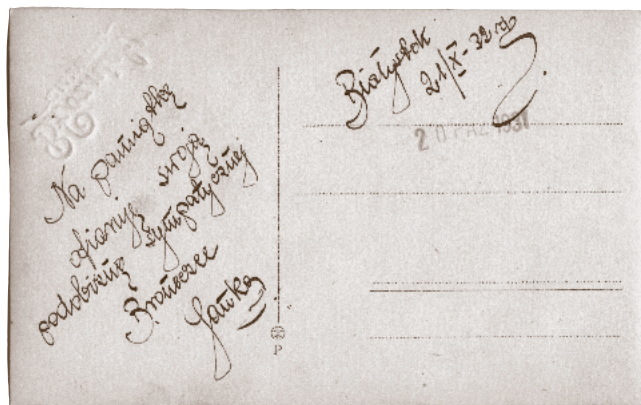 Na pamiątkę
ofiaruję swoją
podobiznę sympatycznej
Brońcecce
Jańka
Białystok
21/X - 32 r
2 PAŹ 1931
P